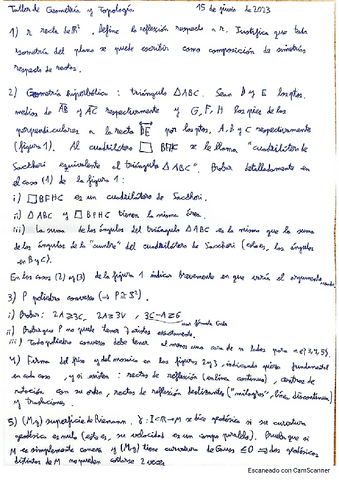 Taller de Geometría y Topología 15 de junio de 2023
1) r recta de ℝ². Define la reflexión respecto a r. Justifica que toda
isometría del plano se puede escribir como composición de simetrías
respecto de rectas.
2) Geometría hiperbólica: triángulo △ABC. Sean D y E los ptos.
medios de AB y AC respectivamente y G, F, H los pies de las
perpendiculares a la recta DE por los ptos. A, B y C respectivamente
(figura 1). Al cuadrilátero □ BFHC se le llama "cuadrilátero de
Saccheri equivalente al triángulo △ABC". Probar detalladamente en
el caso (1) de la figura 1:
i) □BFHC es un cuadrilátero de Saccheri.
ii) △ABC y □BFHC tienen la misma área.
iii) La suma de los ángulos del triángulo △ABC es la misma que la suma
de los ángulos de la "cumbre" del cuadrilátero de Saccheri (esto es, los ángulos
en B y C).
En los casos (2) y (3) de la figura 1 indicar brevemente en que varía el argumento
3) P poliedro convexo (→ P≅S²).
i) Probar: 2A≥3C, 2A≥3V, 3C-A≥6
ii) Pruebe que P no puede tener 7 aristas exactamente.
iii) Todo poliedro convexo debe tener al menos una cara de n lados para n∈{3,4,5}.
4) Firma del friso y del mosaico en las figuras 2 y 3, indicando pieza fundamental
en cada caso, y si existen: rectas de reflexión (en línea continua), centros de
rotación con su orden, rectas de reflexión deslizantes ("milagros", línea discontinua)
y traslaciones.
5) (M,g) superficie de Riemann, γ: I⊂ℝ→M se dice geodésica si su curvatura
geodésica es nula (esto es, su velocidad es un campo paralelo). Prueba que si
M es simplemente conexa y (M,g) tiene curvatura de Gauss ≤0 ⇒ dos geodésicas
distintas de M no pueden cortarse 2 veces.
Escaneado con CamScanner